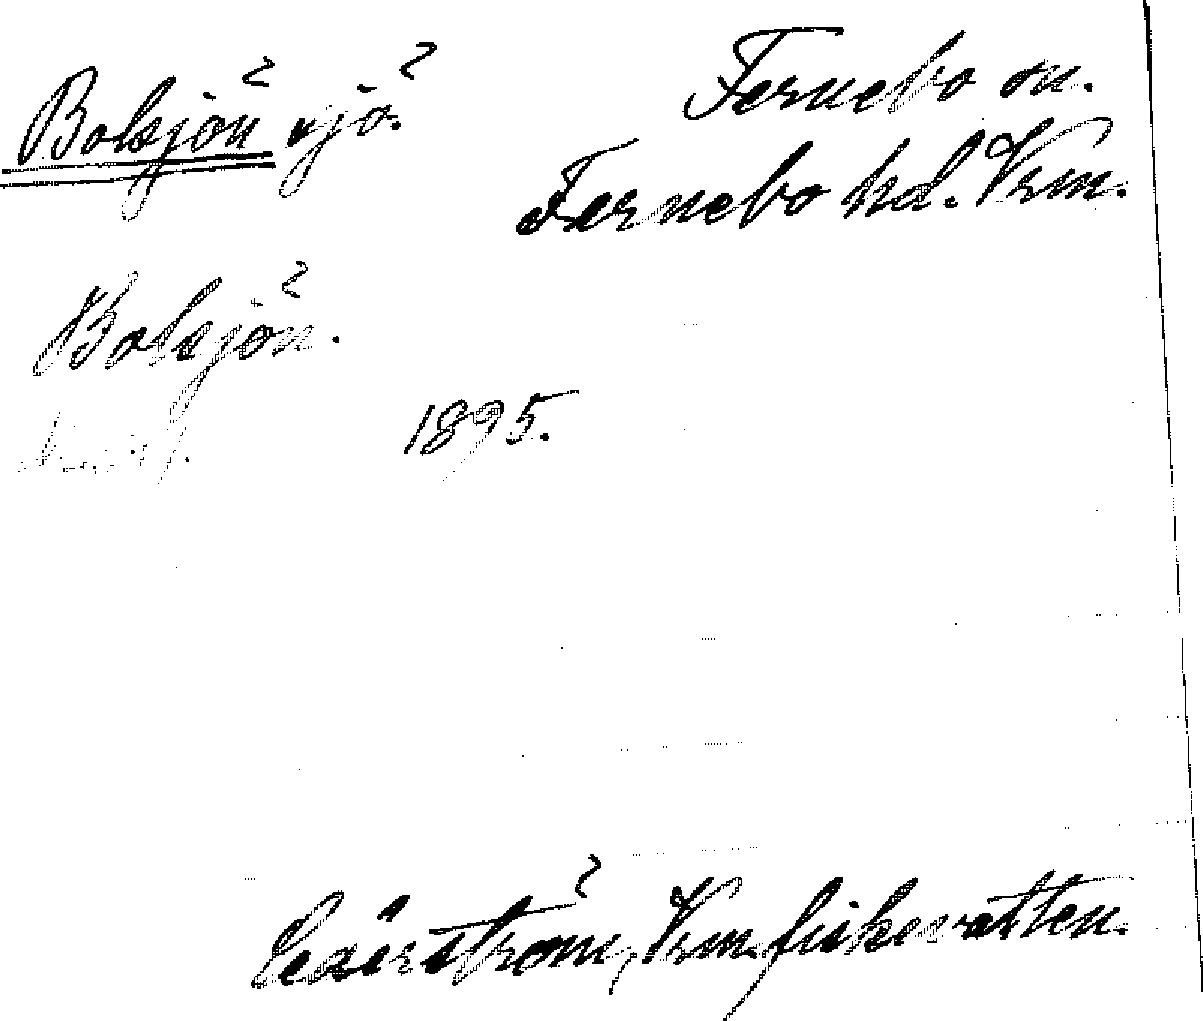 Bolsjön sjö.
Fernebo sn.
Fernebo hd. Vrm.
Bolsjön.
1895.
Cederström, Vrm. fiskevatten.